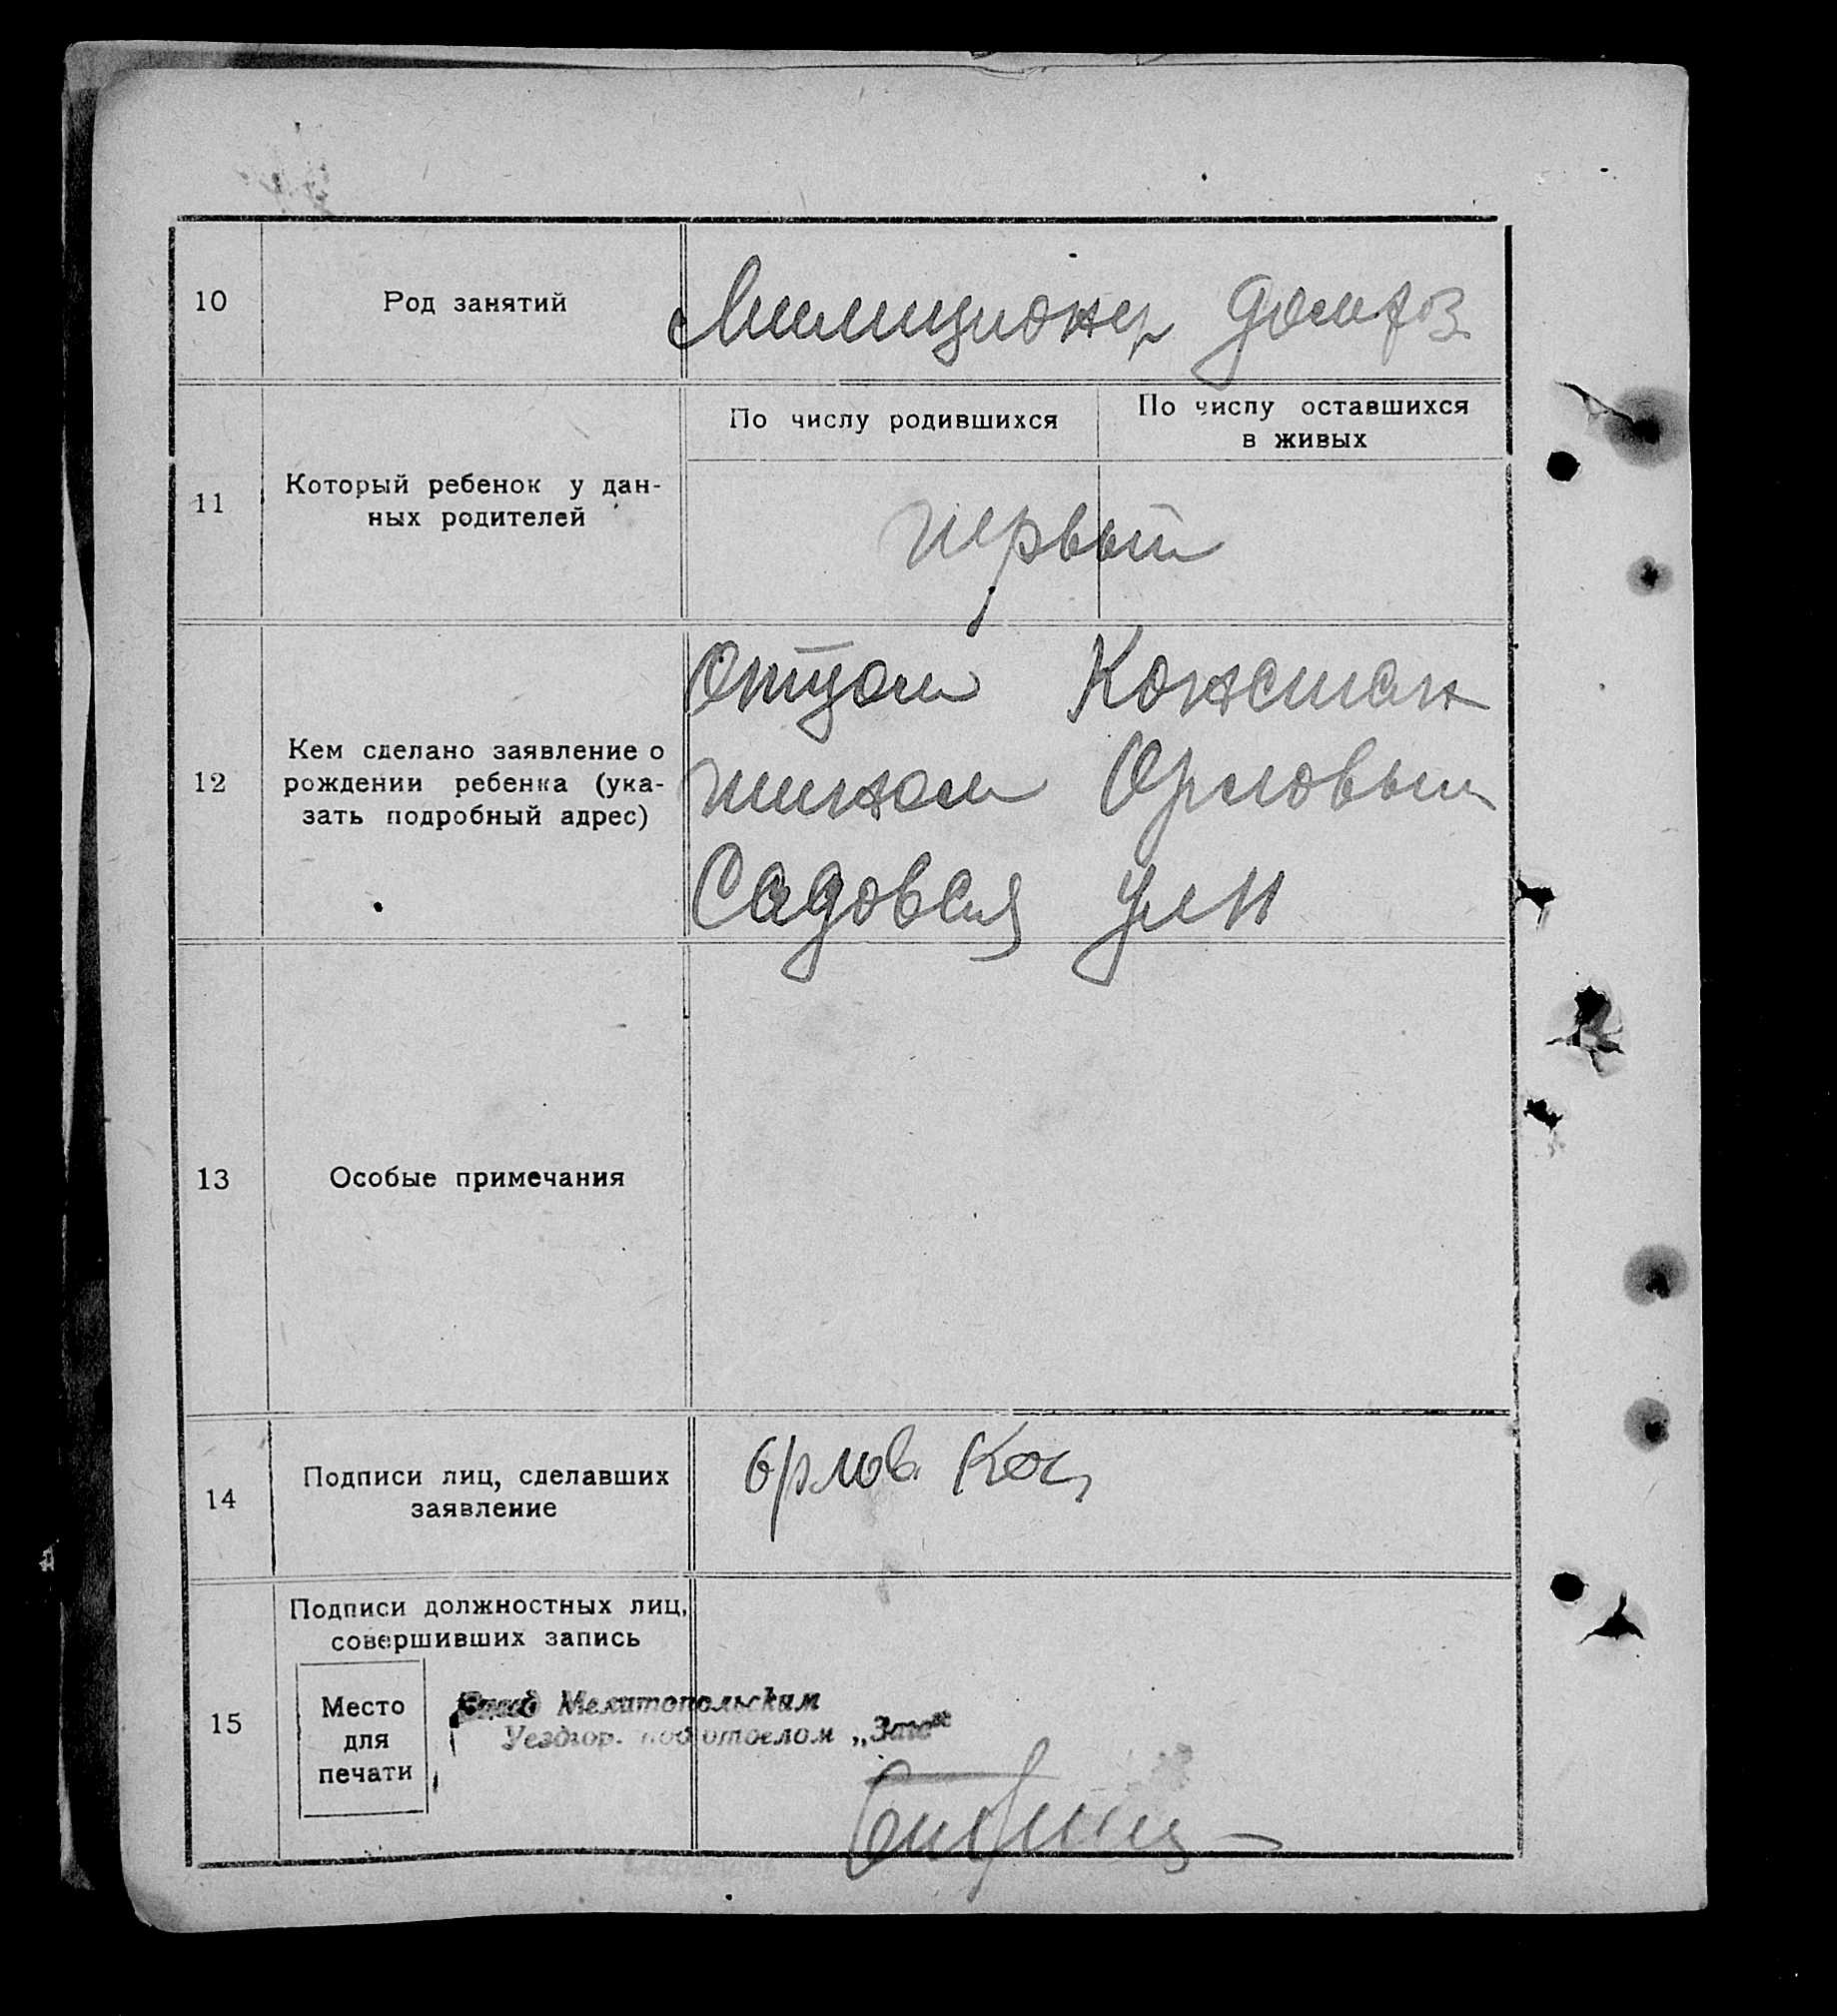 10 Род занятий Милиционер домхоз
11 Который ребенок у дан-
ных родителей
По числу родившихся
По числу оставшихся
в живых
первый
12 Кем сделано заявление о
рождении ребенка (ука-
зать подробный адрес)
Отцом Констан
тином Орловым
Садовая ул
13 Особые примечания
14 Подписи лиц, сделавших
заявление
Орлов Кон
15 Подписи должностных лиц,
совершивших запись
Место
для
печати
Мелитопольским
Уездгор. подотделом „Загс“